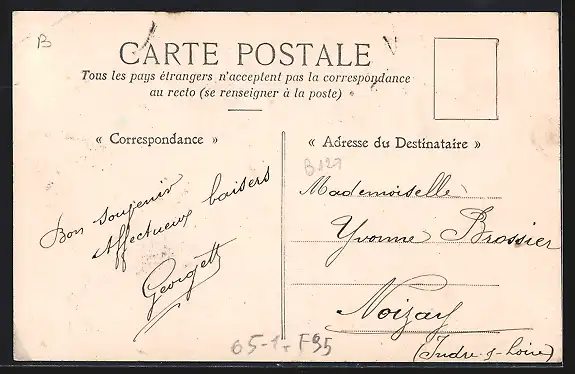 B
CARTE POSTALE
Tous les pays étrangers n'acceptent pas la correspondance
au recto (se renseigner à la poste)
« Correspondance »
« Adresse du Destinataire »
B127
Bon souvenir
Affectueux baisers
Georgett
Mademoiselle
Yvonne Brossier
Noizay
(Indre-s-Loire)
65-1- F95